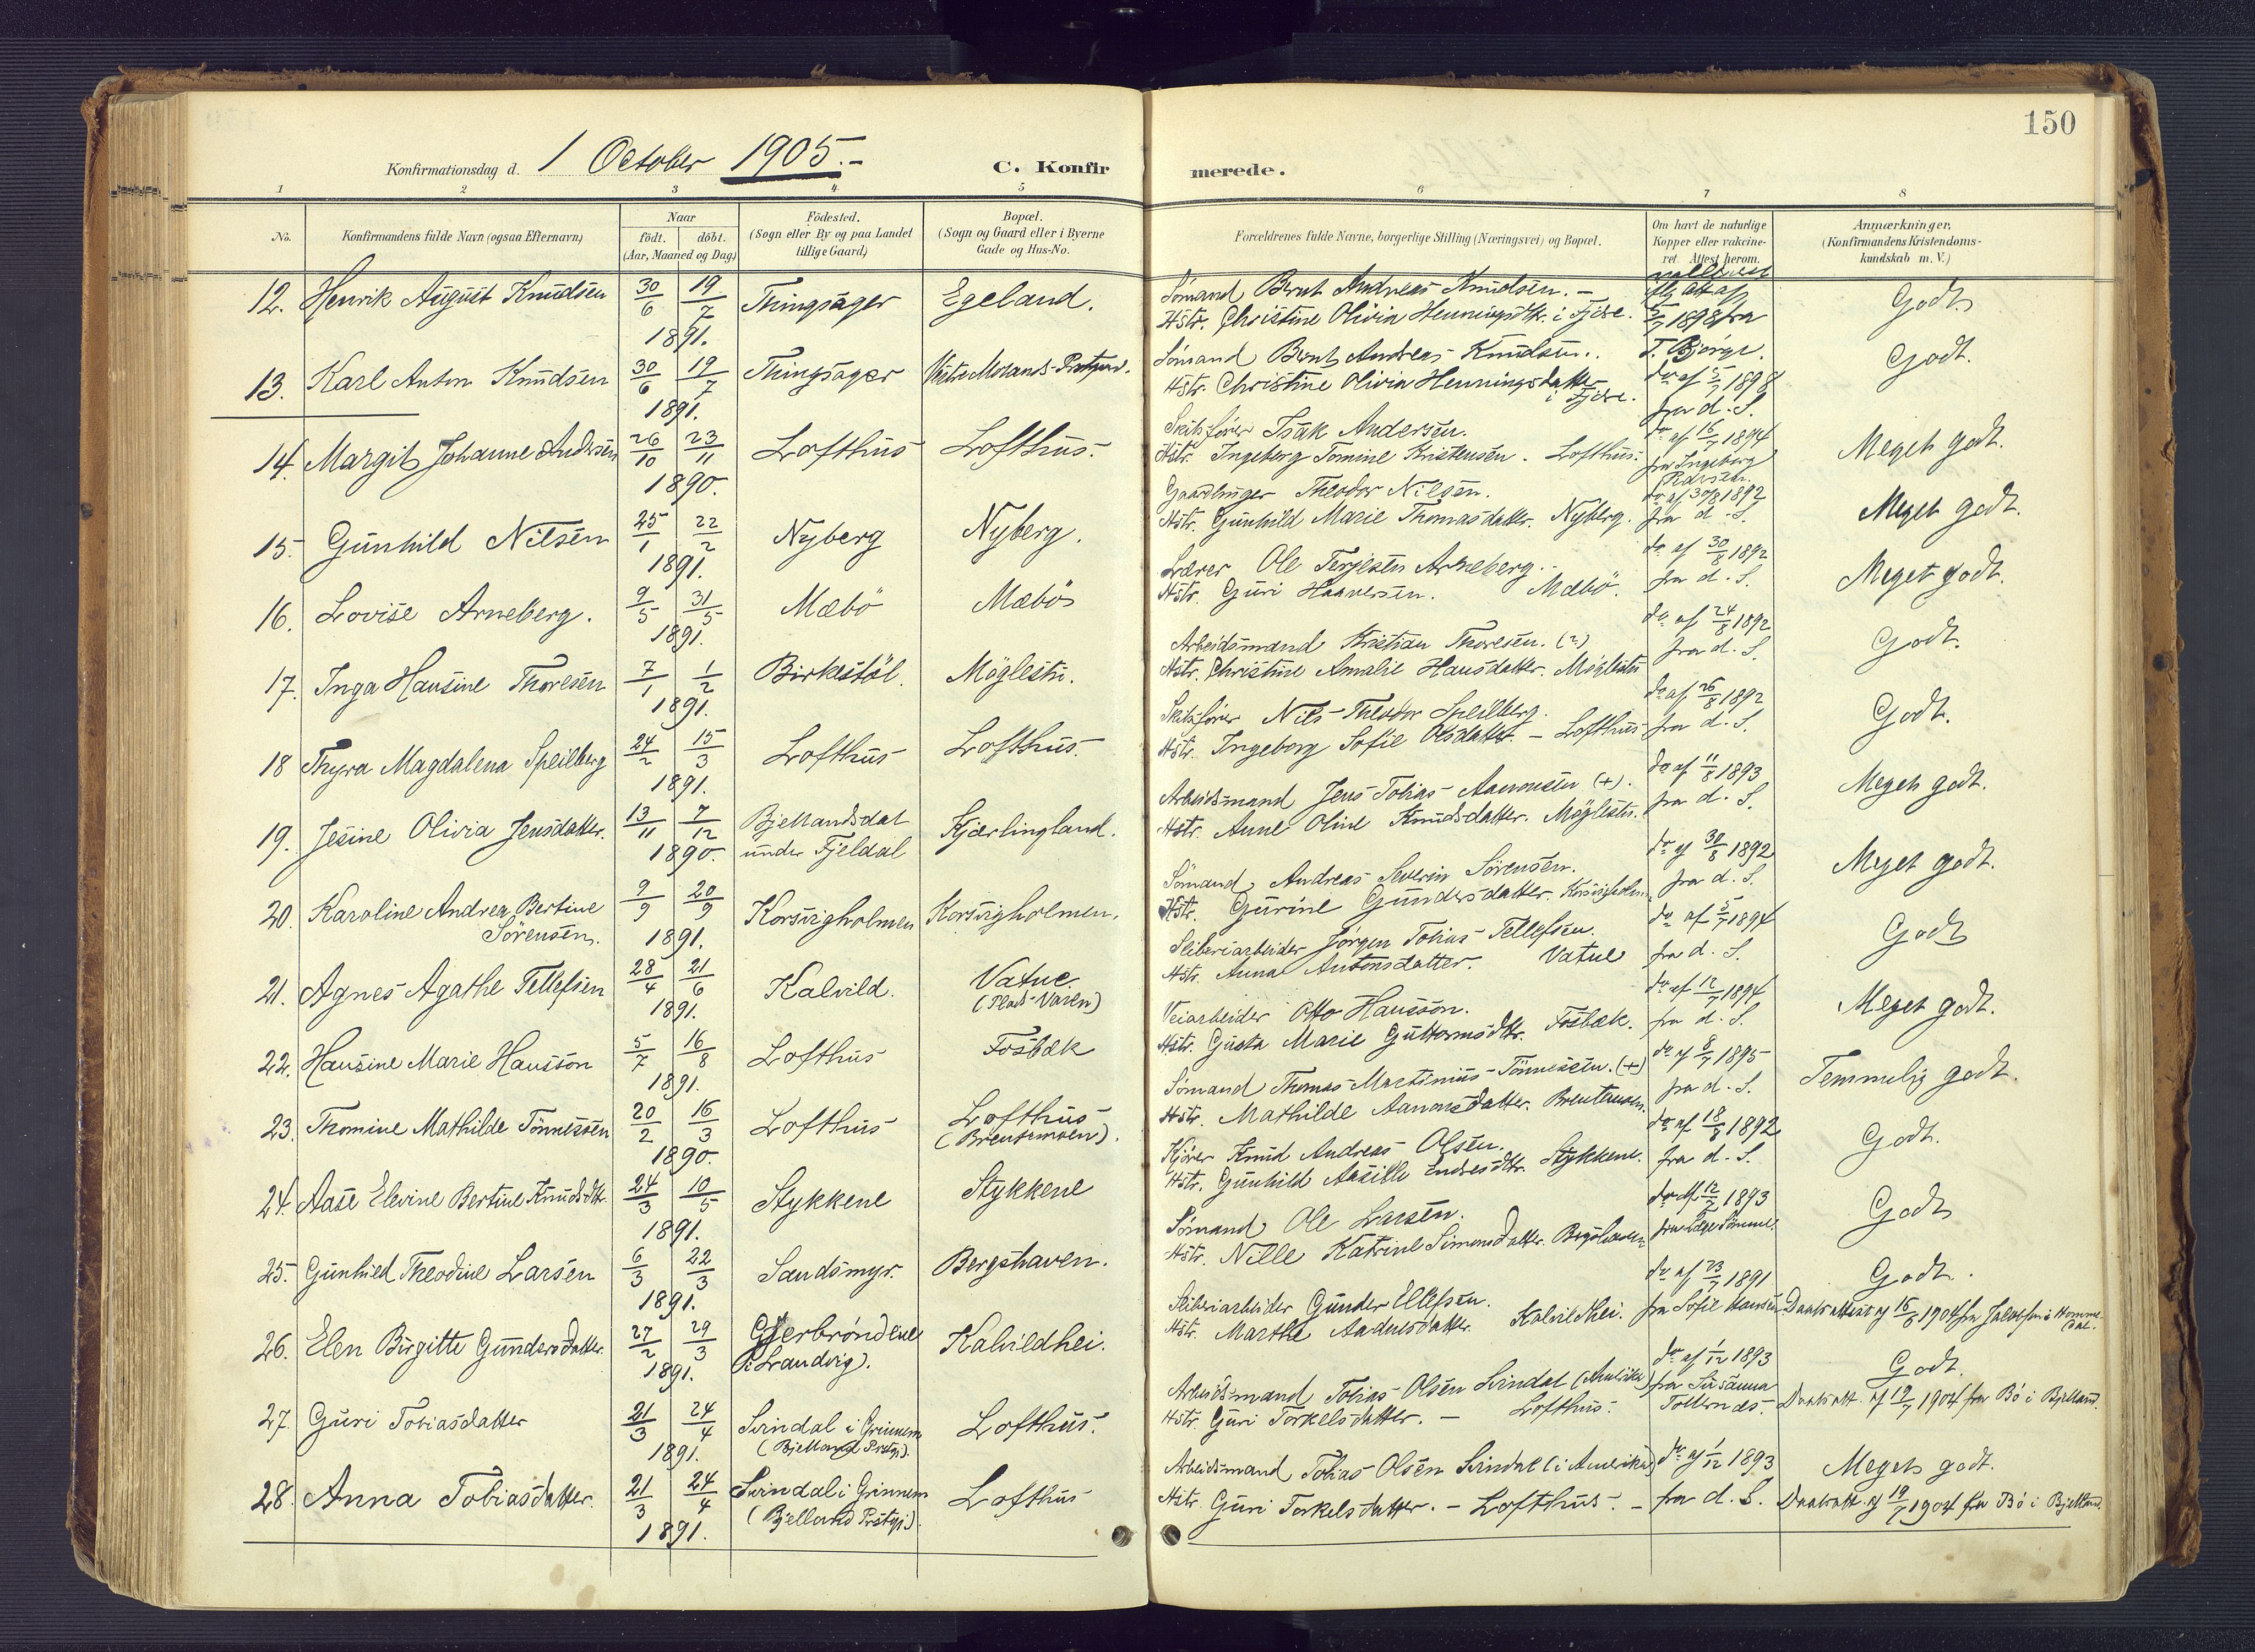 150
Konfirmationsdag d. 1 October 1905.-
C. Konfirmerede.
1 2 3 4 5 6 7 8
No.
Konfirmandens fulde Navn (ogsaa Efternavn)
Naar
født. døbt.
(Aar, Maaned og Dag)
Fødested.
(Sogn eller By og paa Landet
tillige Gaard)
Bopæl.
(Sogn og Gaard eller i Byerne
Gade og Hus-No.
Forældrenes fulde Navne, borgerlige Stilling (Næringsvei) og Bopæl.
Om havt de naturlige
Kopper eller vakcine-
ret. Attest herom.
Anmærkninger,
(Konfirmandens Kristendoms-
kundskab m. V.)
12. Henrik August Knudsen 30/6 19/7 1891. Thingsager Egeland.
Sømand Bernt Andreas Knudsen. -
Hstr. Christine Olivia Henningsdtr. i Fjære.
1898 fra
T. Bjorge.
Godt.
13. Karl Anton Knudsen 30/6 19/7 1891. Thingsager Vestre Molands Prstgjæld.
Sømand Bernt Andreas Knudsen.
Hstr. Christine Olivia Henningsdatter
i Fjære.
do af 5/7 1898
fra d. S.
Godt.
14. Margit Johanne Andersen 26/10 23/11 1890. Lofthus Lofthus.
Skibsfører Isak Andersen.
Hstr. Ingeborg Tomine Kristensen. Lofthus.
do af 16/7 1894
fra Ingeborg
Pedersen.
Meget godt.
15. Gunhild Nilsen 25/1 22/2 1891. Nyberg Nyberg.
Gaardbruger Theodor Nilsen.
Hstr. Gunhild Marie Thomasdatter. Nyberg.
do af 30/8 1892
fra d. S.
Meget godt.
16. Lovise Arneberg. 9/5 31/5 1891. Mæbö Mæbö
Lærer Ole Terjesen Arneberg.
Hstr. Guri Haaversen. Mæbö.
do af 30/8 1892
fra d. S.
Meget godt.
17. Inga Hansine Thoresen 7/1 1/2 1891. Birkestöl. Möglestu.
Arbeidsmand Kristian Thoresen. (?)
Hstr. Christine Amalie Hansdatter. Möglestu
do af 24/8 1892
fra d. S.
Godt.
18 Thyra Magdalena Speilberg 24/2 15/3 1891. Lofthus Lofthus.
Skibsfører Nils Theodor Speilberg.
Hstr. Ingeborg Sofie Olsdatter. - Lofthus
do af 26/8 1892
fra d. S.
Godt.
19. Jesine Olivia Jensdatter. 13/11 7/12 1890. Bjellandsdal
under Fjeldal
Kjærlingland.
Arbeidsmand Jens Tobias Aanonsen (+).
Hstr. Anne Oline Knudsdatter. Möglestu.
do af 11/8 1893
fra d. S.
Meget godt.
20. Karoline Andrea Bertine
Sörensen. 9/9 20/9 1891. Korsvigholmen Korsvigholmen.
Sömand Andreas Severin Sörensen.
Hstr. Gurine Gundersdatter. Korsvigholm.
do af 30/8 1892
fra d. S.
Meget godt.
21. Agnes Agathe Tellefsen 28/4 21/6 1891. Kalvild. Vatne.
(Plads Varen)
Sliberiarbeider Jörgen Tobias Tellefsen.
Hstr. Anna Antonsdatter. Vatne
do af 5/7 1894
fra d. S.
Godt
22. Hansine Marie Hansson 5/7 16/8 1891. Lofthus Fosbæk
Veiarbeider Otto Hansson.
Hstr. Gusta Marie Guttormsdtr. Fosbæk.
do af 12/7 1894
fra d. S.
Meget godt.
23. Thomine Mathilde Tönnessen 20/2 16/3 1890. Lofthus Lofthus
(Brentemoen).
Sömand Thomas Martinius Tönnessen. (+)
Hstr. Mathilde Aanonsdatter. Brentemoen.
do af 8/7 1895
fra d. S.
Temmelig godt.
24. Aase Elevine Bertine Knudsdtr. 24/3 10/5 1891. Stykkene Stykkene
Kjörer Knud Andreas Olsen.
Hstr. Gunhild Aasille Endresdtr. Stykkene.
do af 18/8 1892
fra d. S.
Godt.
25. Gunhild Theodine Larsen 6/3 22/3 1891. Sandsmyr. Bergshaven.
Sömand Ole Larsen.
Hstr. Nille Katrine Simonsdatter. Bergshaven
do af 12/2 1893
fra Læge Sömme.
Godt
26. Elen Birgitte Gundersdatter. 27/2 29/3 1891. Gjerbröndene
(i Landvig).
Kalvildhei.
Sliberiarbeider Gunder Ellefsen.
Hstr. Marthe Andersdatter. Kalvildhei.
do af 23/7 1891
fra Sofie Hansen
Godt.
Daabsattest af 16/6 1904 fra i Homme-
dal.
27. Guri Tobiasdatter 21/3 24/4 1891. Svindal i Grinnem
(Bjelland Prstgj.)
Lofthus.
Arbeidsmand Tobias Olsen Svindal (Amerika)
Hstr. Guri Torkelsdatter. - Lofthus.
do af 1/12 1893
fra Susanna
Tollernæs.
Godt.
Daabsatt. af 19/7 1904 fra Bö i Bjelland.
28. Anna Tobiasdatter. 21/3 24/4 1891. Svindal i Grinnem
(Bjelland Prstgj.)
Lofthus
Arbeidsmand Tobias Olsen Svindal (i Amerika)
Hstr. Guri Torkelsdatter. - Lofthus. -
do af 1/12 1893
fra d. S.
Meget godt.
Daabsatt. af 19/7 1904 fra Bö i Bjelland.